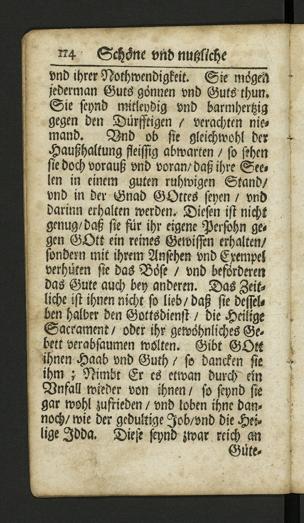 114 Schöne vnd nutzliche
vnd ihrer Nothwendigkeit. Sie mögen
jederman Guts gönnen vnd Guts thun.
Sie seynd mitleydig vnd barmhertzig
gegen den Dürfftigen / verachten nie-
mand. Vnd ob sie gleichwohl der
Haußhaltung fleissig abwarten / so sehen
sie doch vorauß vnd voran / daß ihre See-
len in einem guten ruhwigen Stand /
vnd in der Gnad GOttes seyen / vnd
darinn erhalten werden. Diesen ist nicht
genug / daß sie für ihr eigene Persohn ge-
gen GOtt ein reines Gewissen erhalten /
sondern mit ihrem Ansehen vnd Exempel
verhüten sie das Böse / vnd beförderen
das Gute auch bey anderen. Das Zeit-
liche ist ihnen nicht so lieb / daß sie dessel-
ben halber den Gottsdienst / die Heilige
Sacrament / oder ihr gewöhnliches Ge-
bett verabsaumen wolten. Gibt GOtt
ihnen Haab vnd Guth / so dancken sie
ihm ; Nimbt Er es etwan durch ein
Vnfall wieder von ihnen / so seynd sie
gar wohl zufrieden / vnd loben ihne dan-
noch / wie der gedultige Job / vnd die Hei-
lige Idda. Diese seynd zwar reich an
Güte-